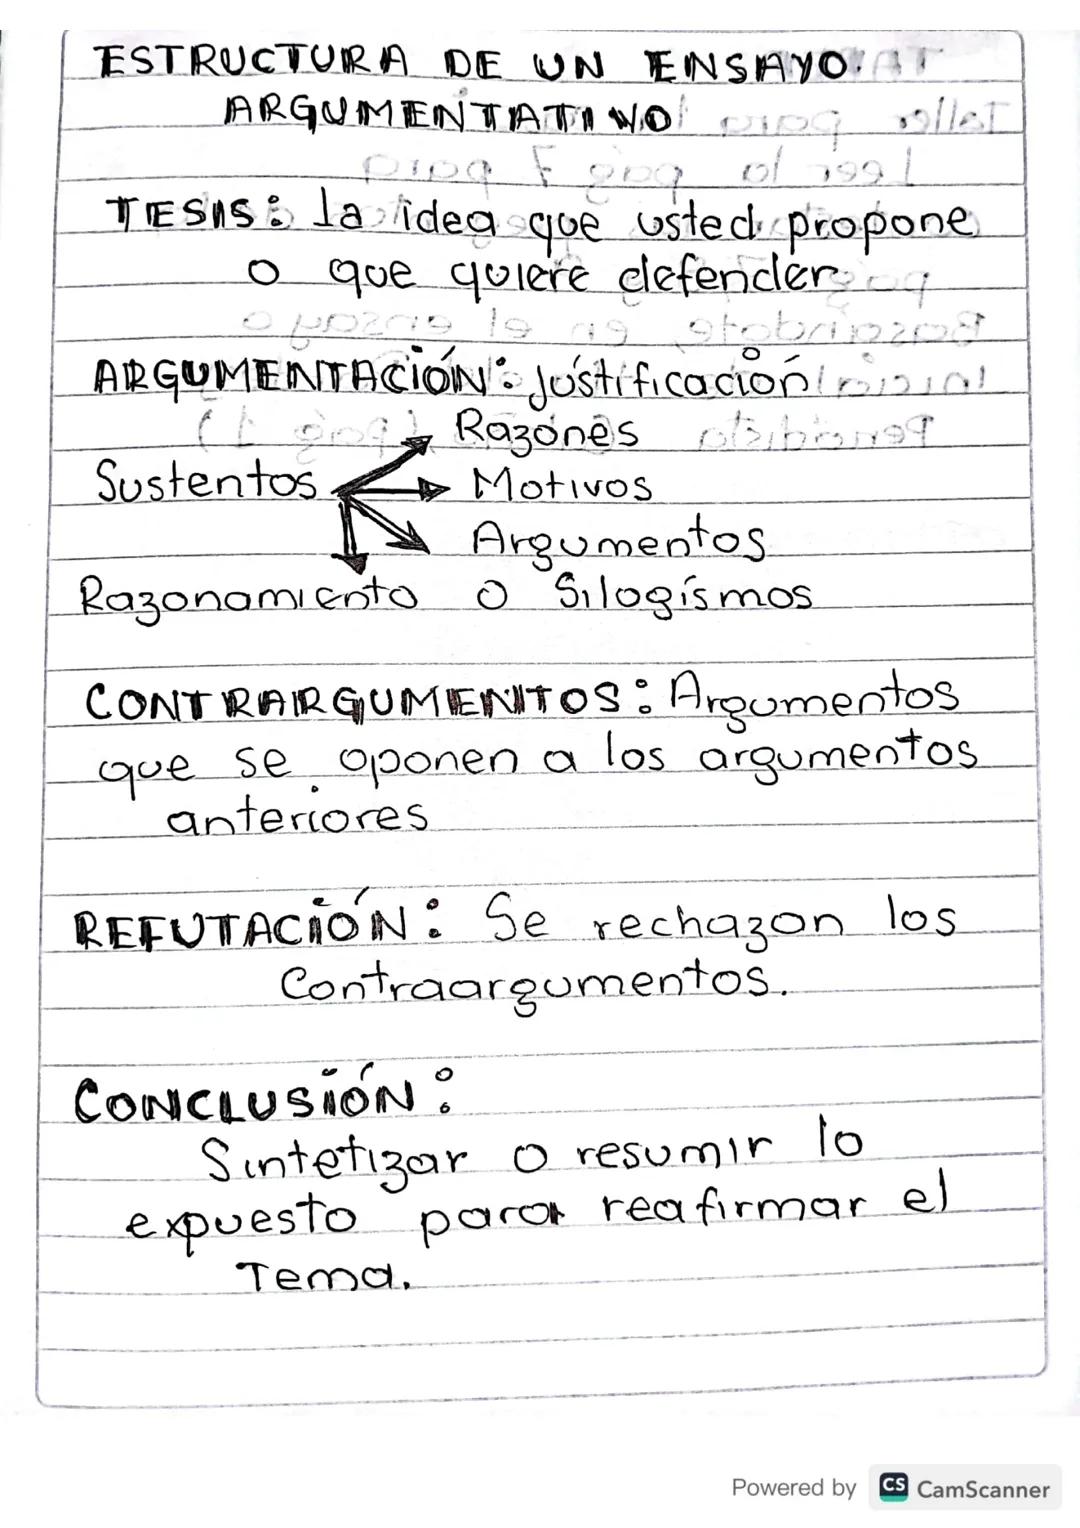 ESTRUCTURA DE UN ENSAYO
ARGUMENTATIVO
TESIS: la idea que usted propone
o que quiere defender
ARGUMENTACIÓN: justificación
Razones
Sustentos Motivos
Argumentos
Razonamiento o Silogísmos
CONTRARGUMENTOS: Argumentos
que se oponen a los argumentos
anteriores
REFUTACIÓN: Se rechazan los
Contraargumentos.
CONCLUSIÓN:
Sintetizar o resumir lo
expuesto para reafirmar el
Tema.
Powered by CS CamScanner